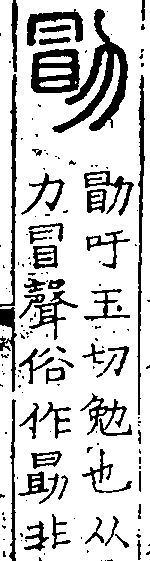 勖
勖吁玉切勉也从
力冒聲俗作勗非